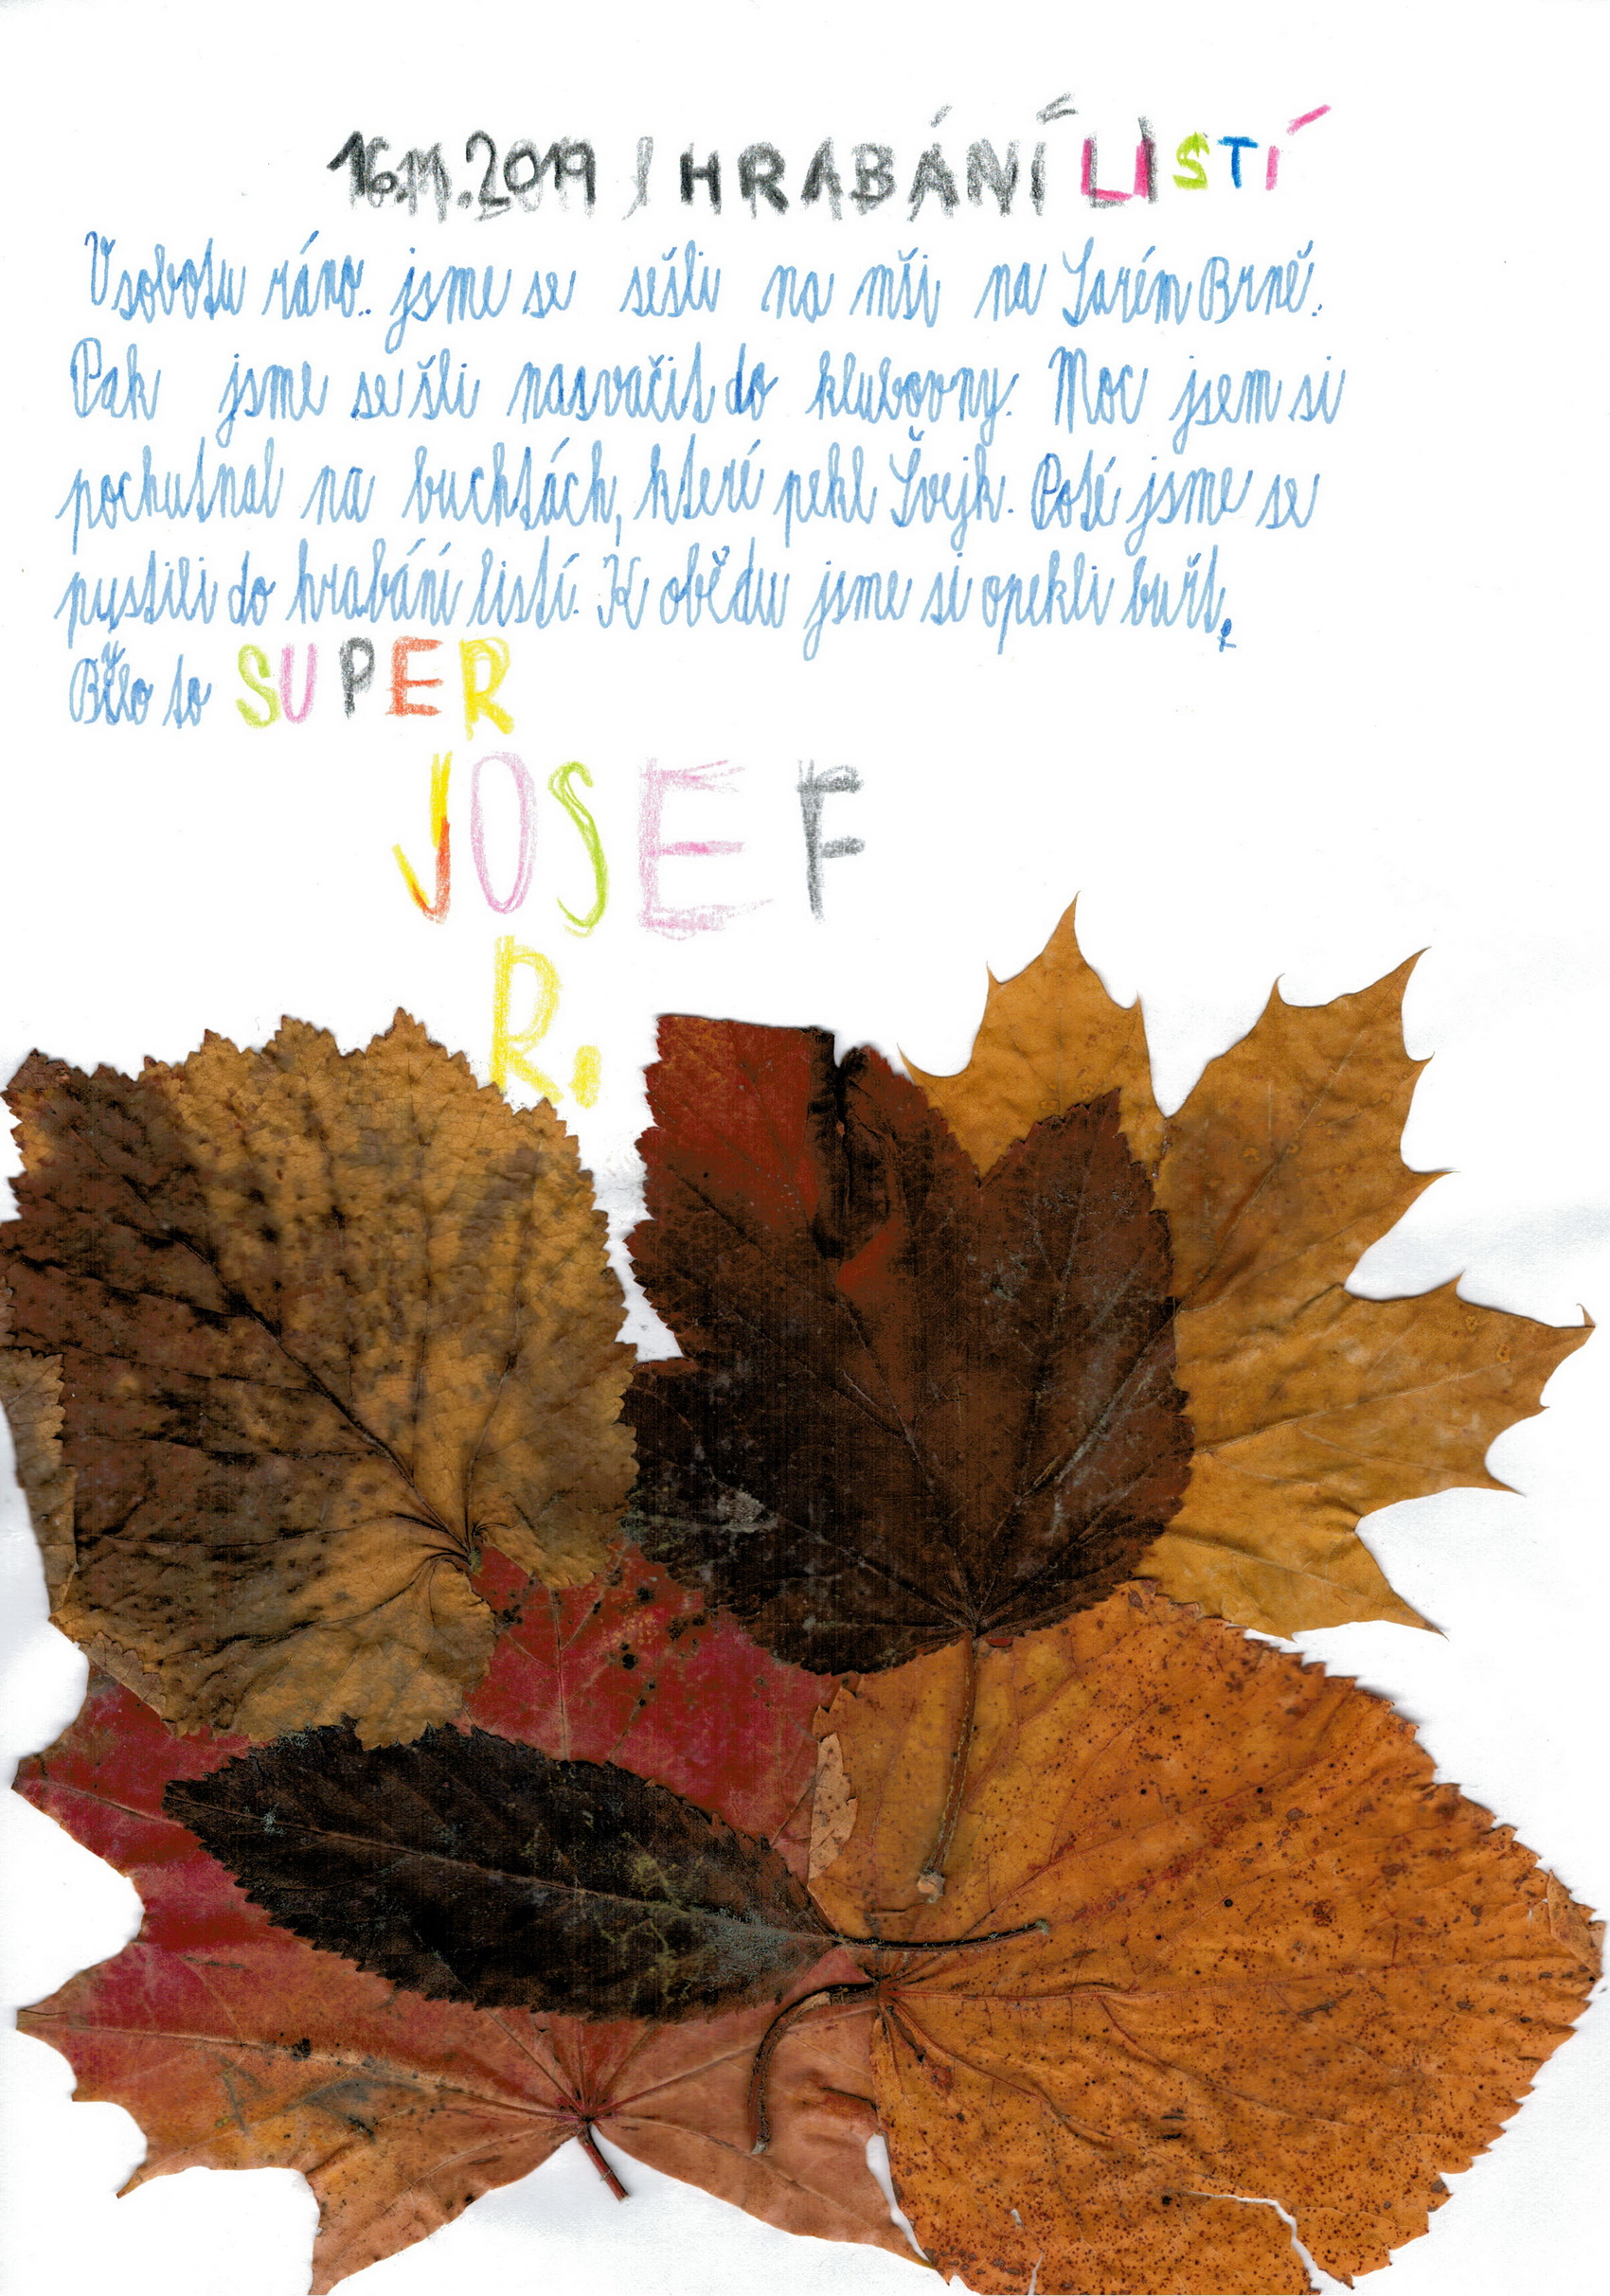 16.11.2019 / HRABÁNÍ LISTÍ
V sobotu ráno.. jsme se sešli na mši na Sarém Brně.
Pak jsme se šli nasvačit do klubovny. Moc jsem si
pochutnal na buchtách, které pekl Švejk. Poté jsme se
pustili do hrabání listí. K obědu jsme si opekli buřt.
Bylo to SUPER
JOSEF
R.